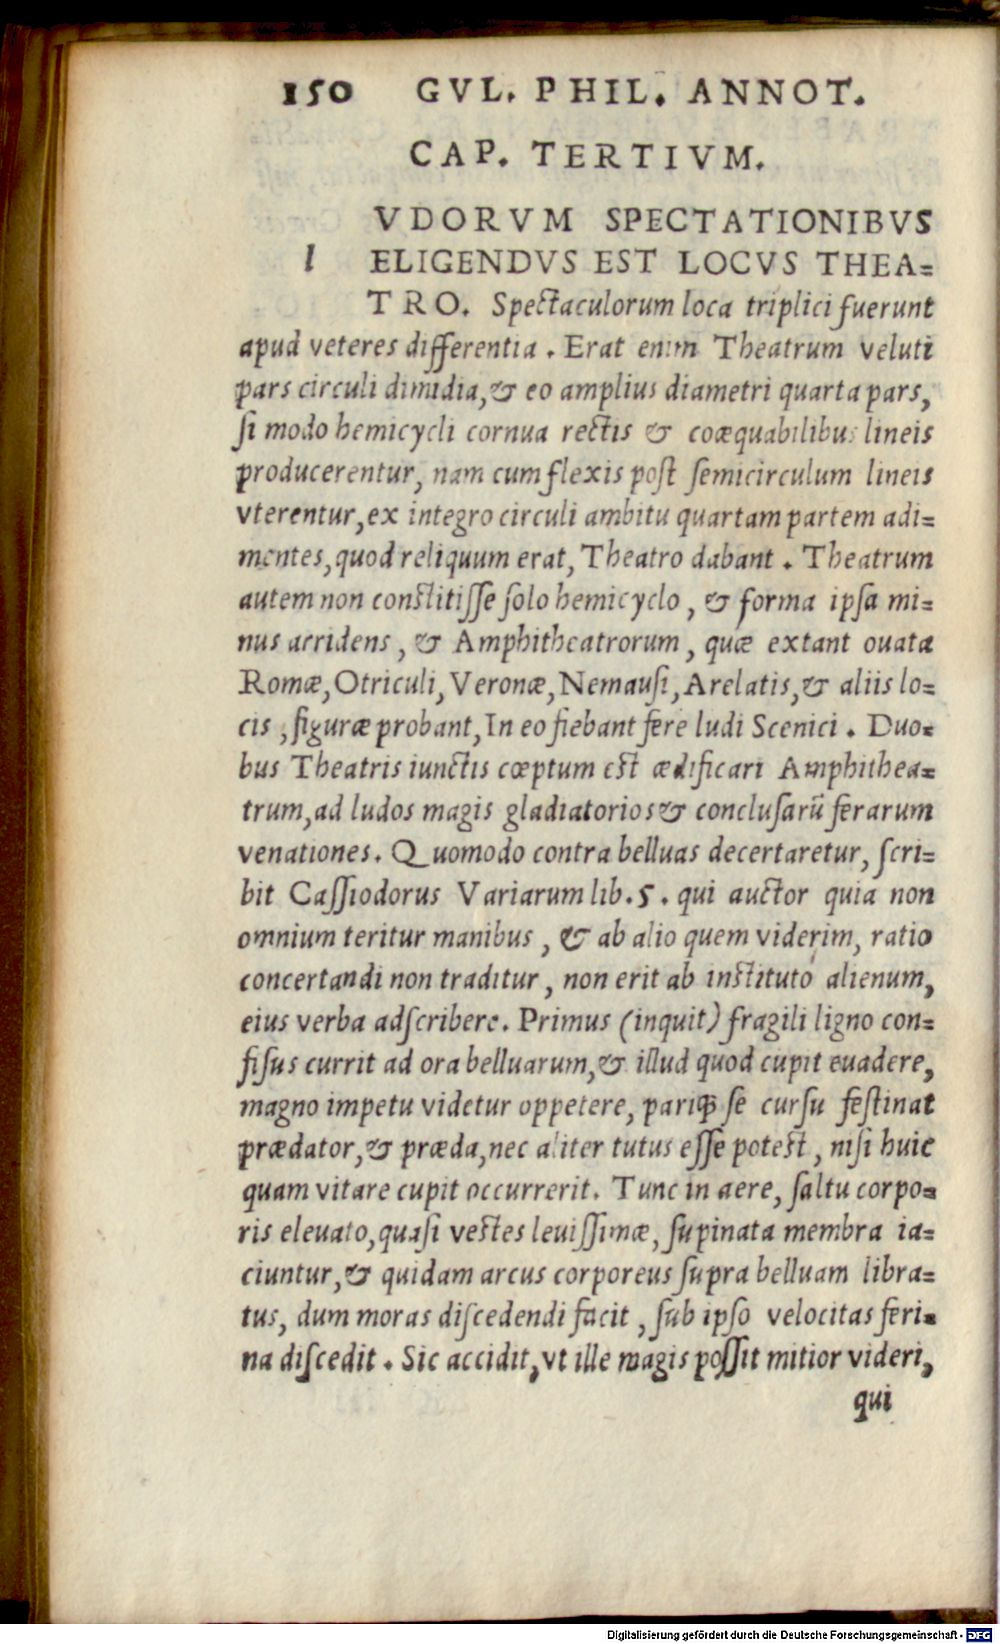 150 GVL. PHIL. ANNOT.
CAP. TERTIVM.
l VDORVM SPECTATIONIBVS
ELIGENDVS EST LOCVS THEA=
TRO. Spectaculorum loca triplici fuerunt
apud veteres differentia. Erat enim Theatrum veluti
pars circuli dimidia, & eo amplius diametri quarta pars,
ſi modo hemicycli cornua rectis & coæquabilibus lineis
producerentur, nam cum flexis poſt ſemicirculum lineis
vterentur, ex integro circuli ambitu quartam partem adi=
mentes, quod reliquum erat, Theatro dabant. Theatrum
autem non conſtitiſſe ſolo hemicyclo, & forma ipſa mi=
nus arridens, & Amphitheatrorum, quæ extant ouata
Romæ, Otriculi, Veronæ, Nemauſi, Arelatis, & aliis lo=
cis, figuræ probant, In eo fiebant fere ludi Scenici. Duo=
bus Theatris iunctis cœptum eſt ædificari Amphithea=
trum, ad ludos magis gladiatorios & concluſarũ ferarum
venationes. Quomodo contra belluas decertaretur, ſcri=
bit Caſſiodorus Variarum lib. 5. qui auctor quia non
omnium teritur manibus, & ab alio quem viderim, ratio
concertandi non traditur, non erit ab inſtituto alienum,
eius verba adſcribere. Primus (inquit) fragili ligno con=
fiſus currit ad ora belluarum, & illud quod cupit euadere,
magno impetu videtur oppetere, pariꝙ ſe curſu feſtinat
prædator, & præda, nec aliter tutus eſſe poteſt, niſi huic
quam vitare cupit occurrerit. Tunc in aere, ſaltu corpo=
ris eleuato, quaſi veſtes leuiſſimæ, ſupinata membra ia=
ciuntur, & quidam arcus corporeus ſupra belluam libra=
tus, dum moras diſcedendi facit, ſub ipſo velocitas feri=
na diſcedit. Sic accidit, vt ille magis poſſit mitior videri,
qui
Digitalisierung gefördert durch die Deutsche Forschungsgemeinschaft - DFG